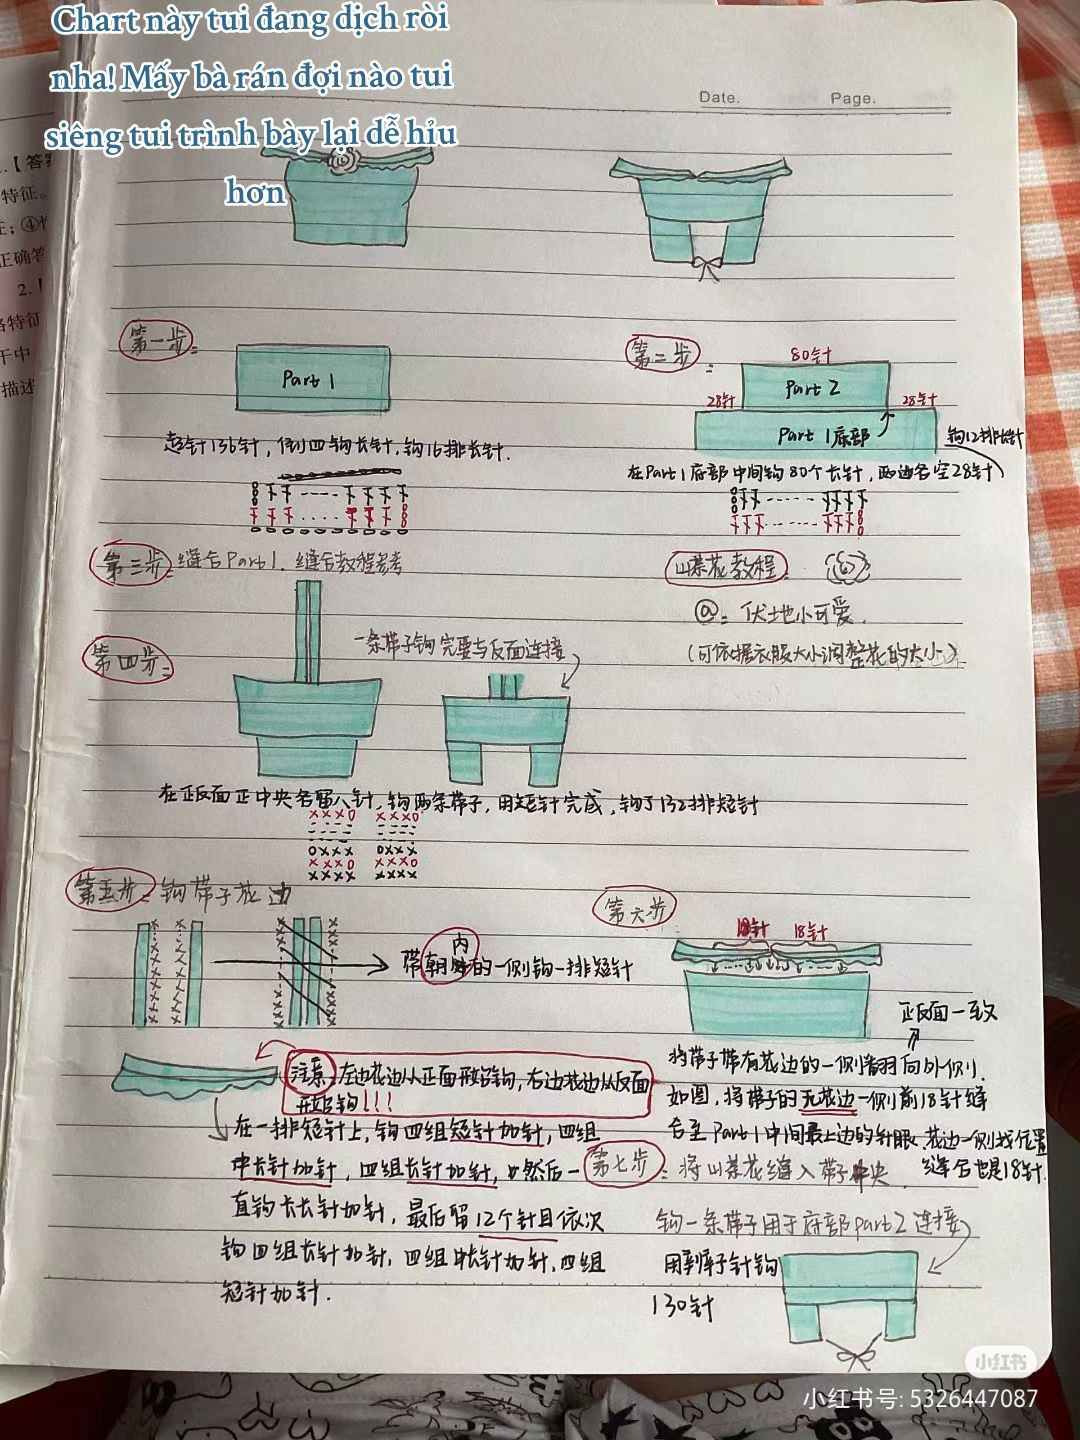 Chart này tui đang dịch ròi
nha! Mấy bà rán đợi nào tui
siêng tui trình bày lại dễ hỉu
hơn
Date.
Page.
.【答案
特征。
征；④
正确答
2.
各特征
干中
描述
第一步：
Part 1
起针136针，倒四钩长针，钩16排长针.
第二步：
80针
Part 2
28针
28针
Part 1底部
钩12排长针
在Part1底部中间钩80个长针，两边各空28针
第三步：缝合Part1. 缝合教程参考
山茶花教程：
@：伏地小可爱.
(可依据衣服大小调整花的大小)
第四步：
一条带子钩完要与反面连接
在正反面正中央各留八针，钩两条带子，用短针完成，钩了132排短针
第五步：钩带子花边
带朝内的一侧钩一排短针
第六步
18针
18针
正反面一致
将带子带有花边的一侧翻向外侧.
如图，将带子的无花边一侧前18针缝
合至Part1中间最上边的针眼，花边一侧找位置
缝合也是18针.
注意：左边花边从正面开始钩，右边花边从反面
开始钩！！！
在一排短针上，钩四组短针加针，四组
中长针加针，四组长针加针，然后一
直钩长长针加针，最后留12个针目依次
钩四组长针加针，四组中长针加针，四组
短针加针.
第七步：将山茶花缝入带子中央.
钩一条带子用于底部part2连接
用到辫子针钩
130针
小红书
小红书号: 5326447087